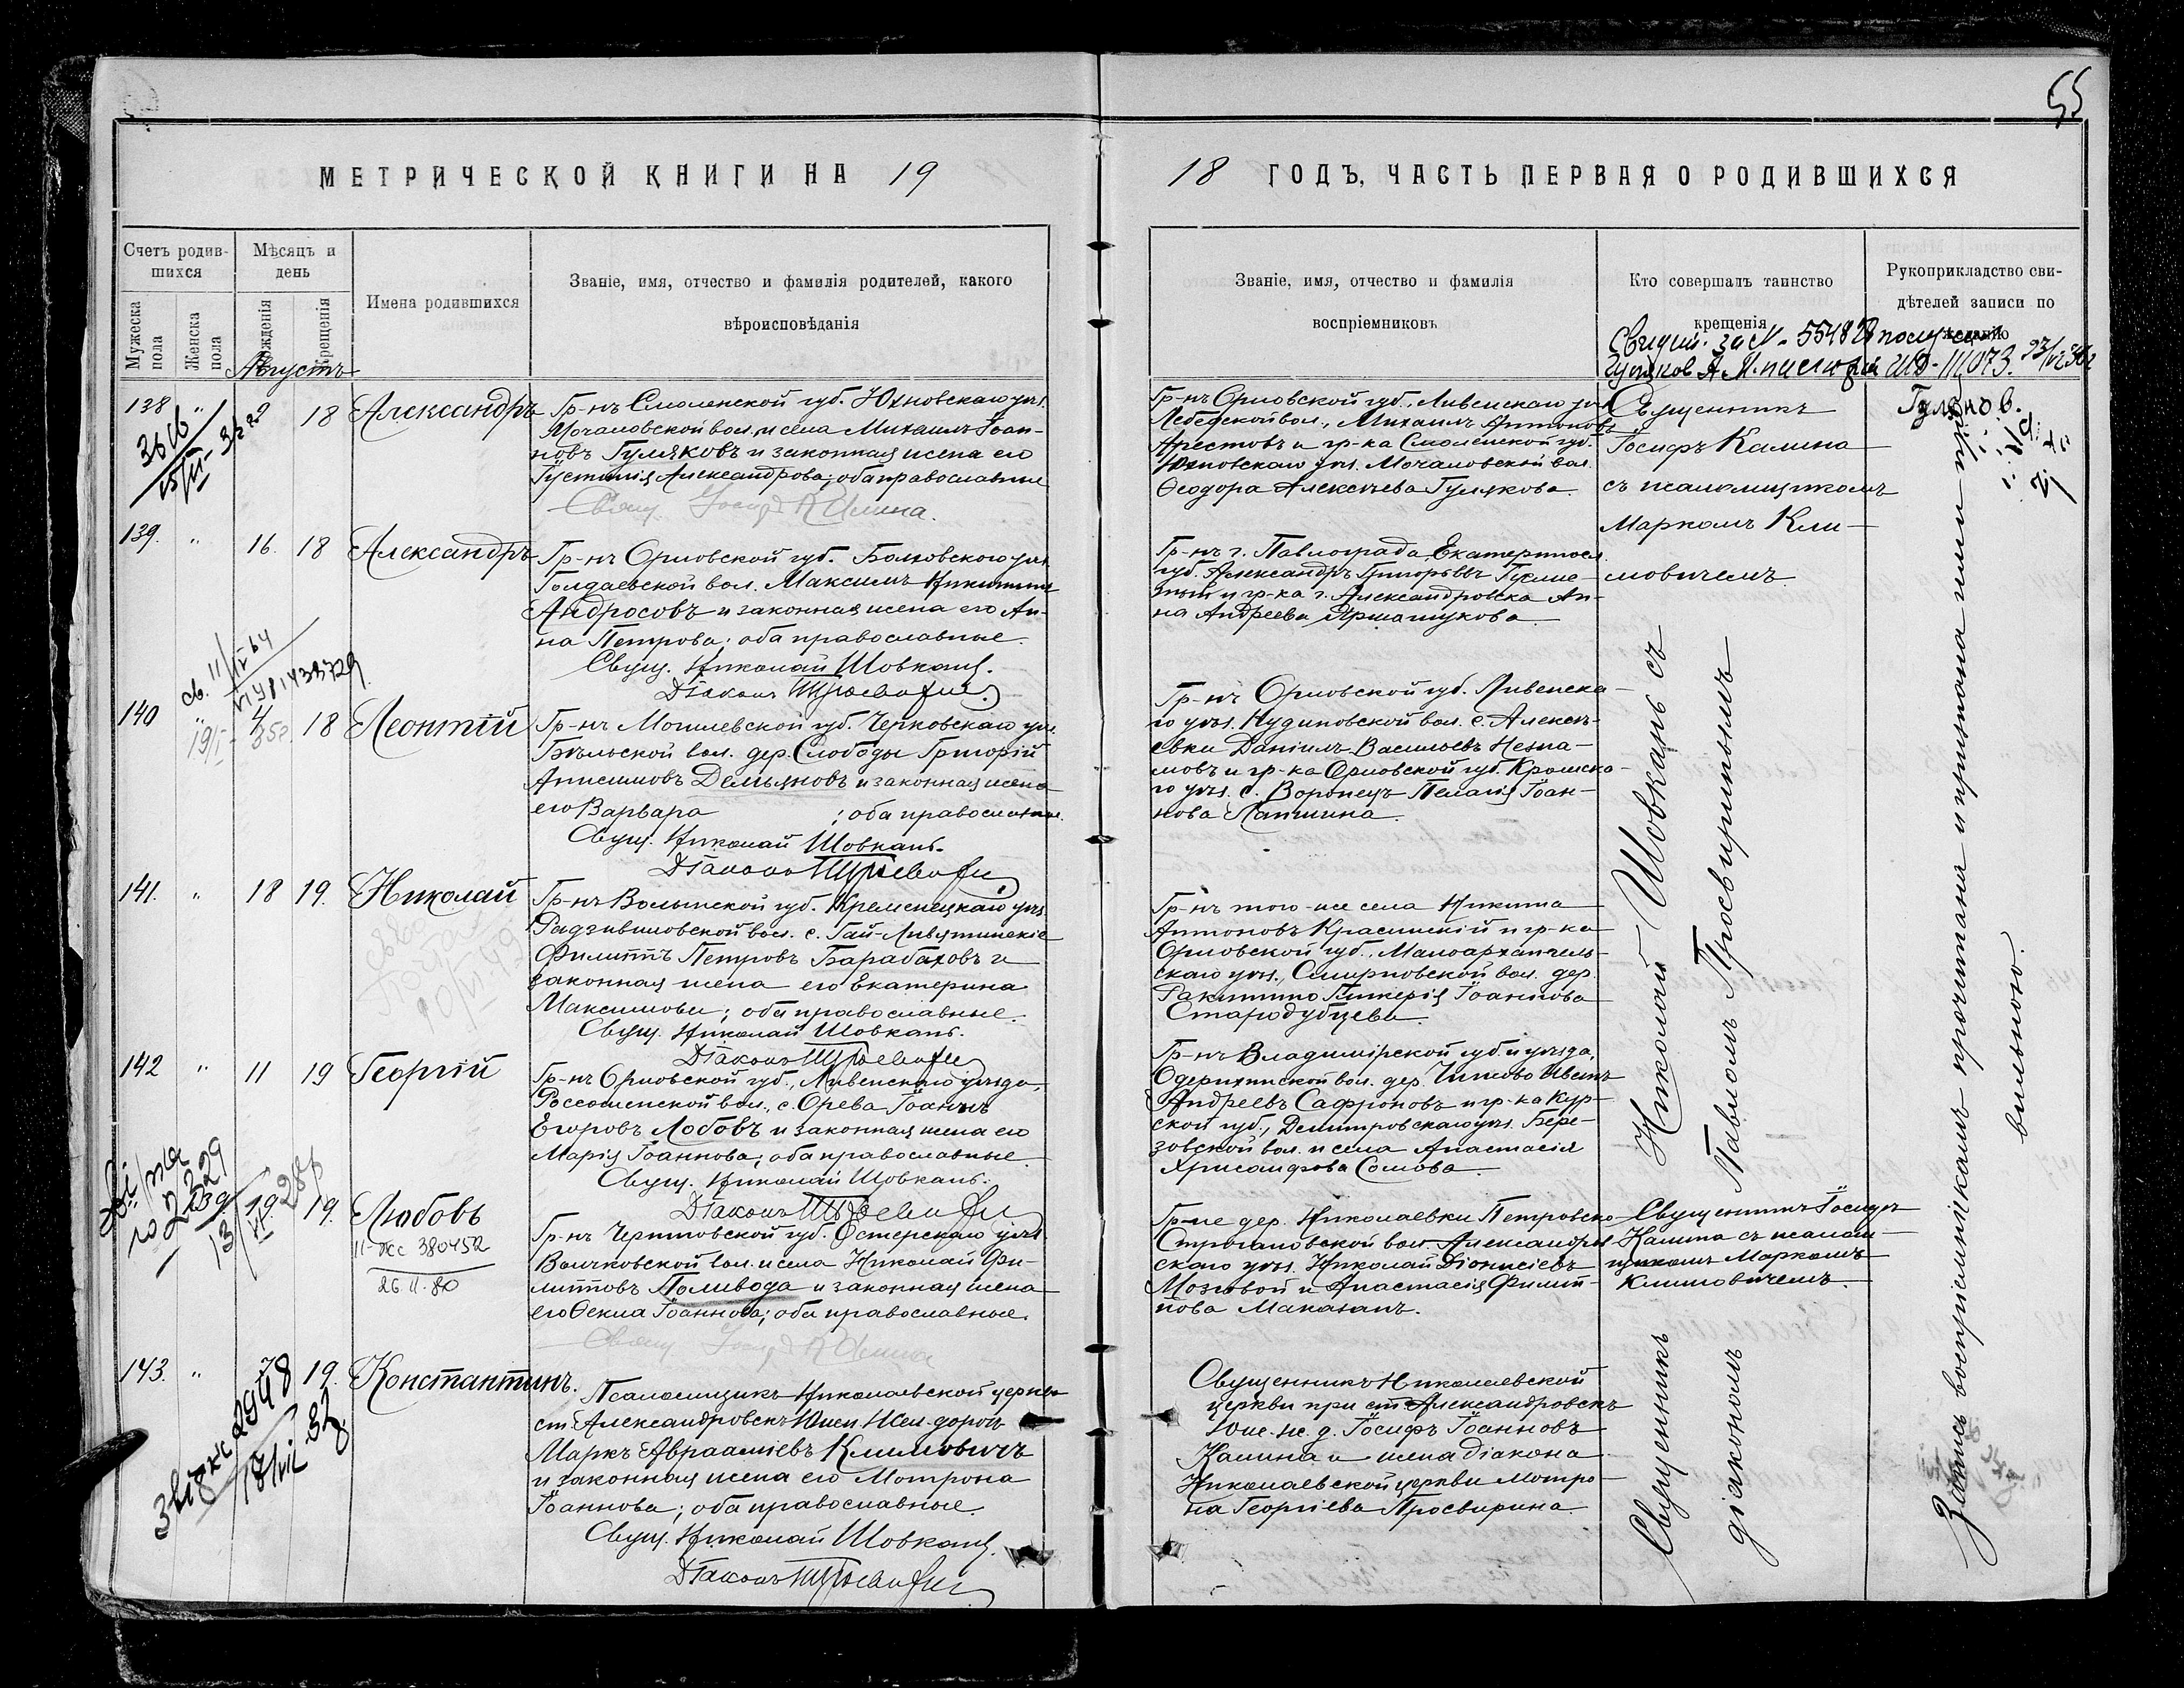 55
МЕТРИЧЕСКОЙ КНИГИ НА 19
18 ГОДЪ, ЧАСТЬ ПЕРВАЯ О РОДИВШИХСЯ
Счетъ родив-
шихся
Мужеска пола
Женска пола
Мѣсяцъ и
день
рожденія
крещенія
Августъ
Имена родившихся
Званіе, имя, отчество и фамилія родителей, какого
вѣроисповѣданія
Званіе, имя, отчество и фамилія
воспріемниковъ
Кто совершалъ таинство
крещенія
Рукоприкладство сви-
дѣтелей записи по
желанію
138 " 18 Александръ
Гр-нъ Смоленской губ. Юхновскаго уѣз.
Мочаловской вол. и села Михаилъ Іоан-
новъ Гуляковъ и законная жена его
Іустинія Александрова; оба православные
Свящ. Іосифъ Калина.
Гр-нъ Орловской губ., Ливенскаго уѣз.
Михаилъ Антоновъ
Арестовъ и гр-ка Смоленской губ.
Юхновскаго уѣз. Мочаловской вол.
Ѳеодора Алексѣева Гулякова.
Священникъ
Іосифъ Калина
съ псаломщикомъ
Маркомъ Кли-
мовичемъ.
139. " 16. 18 Александръ
Гр-нъ Орловской губ. Болховскаго уѣз.
Голдаевской вол. Максимъ Никитинъ
Андросовъ и законная жена его Ан-
на Петрова; оба православные.
Свящ. Николай Шовкань.
Діаконъ
Гр-нъ г. Павлограда Екатеринос.
губ. Александръ Григорьевъ
и гр-ка г. Александровска Ан-
на Андреева
140 " 4 18 Леонтій
Гр-нъ Могилевской губ. Чериковскаго уѣз.
Бѣльской вол. дер. Слободы Григорій
Анисимовъ Демьяновъ и законная жена
его Варвара ; оба православные.
Свящ. Николай Шовкань.
Діаконъ
Гр-нъ Орловской губ. Ливенска-
го уѣз. Кудиновской вол. с. Алексѣ-
евки Даніилъ Васильевъ Незна-
мовъ и гр-ка Орловской губ. Кромска-
го уѣз. с. Воронецъ Пелагія Іоан-
нова Лапшина.
141. " 18 19. Николай
Гр-нъ Волынской губ. Кременецкаго уѣз.
Радзивиловской вол. с. Гай-Левятинскіе
Филиппъ Петровъ Барабаховъ и
законная жена его Екатерина
Максимова; оба православные.
Свящ. Николай Шовкань.
Діаконъ
Гр-нъ того-же села Никита
Антоновъ Красицкій и гр-ка
Орловской губ., Малоархангель-
скаго уѣз., Смирновской вол. дер.
Ракитино Гликерія Іоаннова
Стародубцева.
142 " 11 19 Георгій
Гр-нъ Орловской губ., Ливенскаго уѣзда,
Россошенской вол., с. Орева Іоаннъ
Егоровъ Лобовъ и законная жена его
Марія Іоаннова; оба православные
Свящ. Николай Шовкань.
Діаконъ
Гр-нъ Владимірской губ. и уѣзда,
Одерихинской вол. дер. Иванъ
Андреевъ Сафроновъ и гр-ка Кур-
ской губ., Дмитровскаго уѣз. Бере-
зовской вол. и села Анастасія
Хрисанфова Сомова.
Священникъ Николай Шовкань съ
діакономъ Павломъ Просвиринымъ
19. Любовь
II-жс 380452
26.II.80
Гр-нъ Черниговской губ. Остерскаго уѣз.
вол. и села Николай Фи-
липповъ Поливода и законная жена
его Ѳекла Іоаннова; оба православные.
Свящ. Іосифъ Калина
Гр-не дер. Николаевки Петровско-
Строгановской вол. Александров-
скаго уѣз. Николай Діонисіевъ
Мозговой и Анастасія Филип-
пова Маказанъ.
Священникъ Іосифъ
Калина съ псалом-
щикомъ Маркомъ
Климовичемъ.
143. " 19. Константинъ.
Псаломщикъ Николаевской церкви
ст. Александровскъ Южн. Жел. дорогъ
Маркъ Авраамiевъ Климовичъ
и законная жена его Мотрона
Іоаннова; оба православные.
Свящ. Николай Шовкань.
Діаконъ
Священникъ Николаевской
церкви при ст. Александровскъ
Юж. ж. д. Іосифъ Іоанновъ
Калина и жена діакона
Николаевской церкви Мотро-
на Георгіева Просвирина.
Запись воспріемникамъ прочитана и признана ими пра-
вильною.